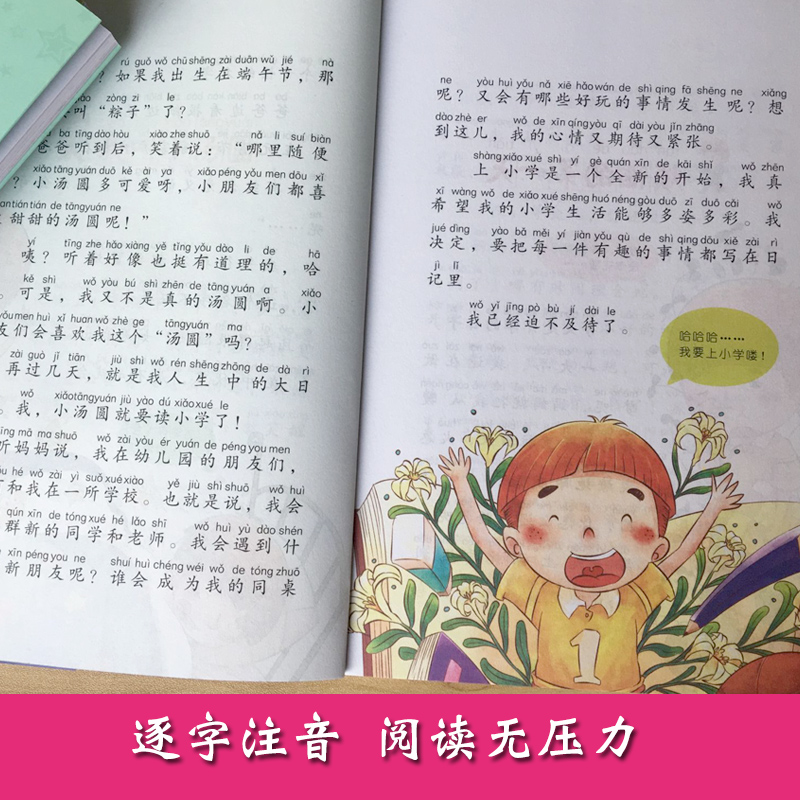 rú guǒ wǒ chū shēng zài duān wǔ jié nà
？如果我出生在端午节，那
zòng zi le
叫“粽子”了？
ba tīng dào hòu xiào zhe shuō nǎ lǐ suí biàn
爸爸听到后，笑着说：“哪里随便
xiǎo tāng yuán duō kě ài ya xiǎo péng yǒu men dōu xǐ
？小汤圆多可爱呀，小朋友们都喜
tián tián de tāng yuán ne
甜甜的汤圆呢！”
yí tīng zhe hǎo xiàng yě tǐng yǒu dào lǐ de hā
咦？听着好像也挺有道理的，哈
kě shì wǒ yòu bú shì zhēn de tāng yuán a xiǎo
。可是，我又不是真的汤圆啊。小
yǒu men huì xǐ huan wǒ zhè ge tāng yuán ma
友们会喜欢我这个“汤圆”吗？
zài guò jǐ tiān jiù shì wǒ rén shēng zhōng de dà rì
再过几天，就是我人生中的大日
wǒ xiǎo tāng yuán jiù yào dú xiǎo xué le
。我，小汤圆就要读小学了！
tīng mā ma shuō wǒ zài yòu ér yuán de péng you men
听妈妈说，我在幼儿园的朋友们，
hé wǒ zài yì suǒ xué xiào yě jiù shì shuō wǒ huì
和我在一所学校。也就是说，我会
qún xīn de tóng xué hé lǎo shī wǒ huì yù dào shén
群新的同学和老师。我会遇到什
xīn péng you ne shuí huì chéng wéi wǒ de tóng zhuō
新朋友呢？谁会成为我的同桌
ne yòu huì yǒu nǎ xiē hǎo wán de shì qing fā shēng ne xiǎng
呢？又会有哪些好玩的事情发生呢？想
dào zhè er wǒ de xīn qíng yòu qī dài yòu jǐn zhāng
到这儿，我的心情又期待又紧张。
shàng xiǎo xué shì yí gè quán xīn de kāi shǐ wǒ zhēn
上小学是一个全新的开始，我真
xī wàng wǒ de xiǎo xué shēng huó néng gòu duō zī duō cǎi wǒ
希望我的小学生活能够多姿多彩。我
jué dìng yào bǎ měi yí jiàn yǒu qù de shì qing dōu xiě zài rì
决定，要把每一件有趣的事情都写在日
jì lǐ
记里。
wǒ yǐ jīng pò bù jí dài le
我已经迫不及待了。
哈哈哈……
我要上小学喽！
1
逐字注音 阅读无压力